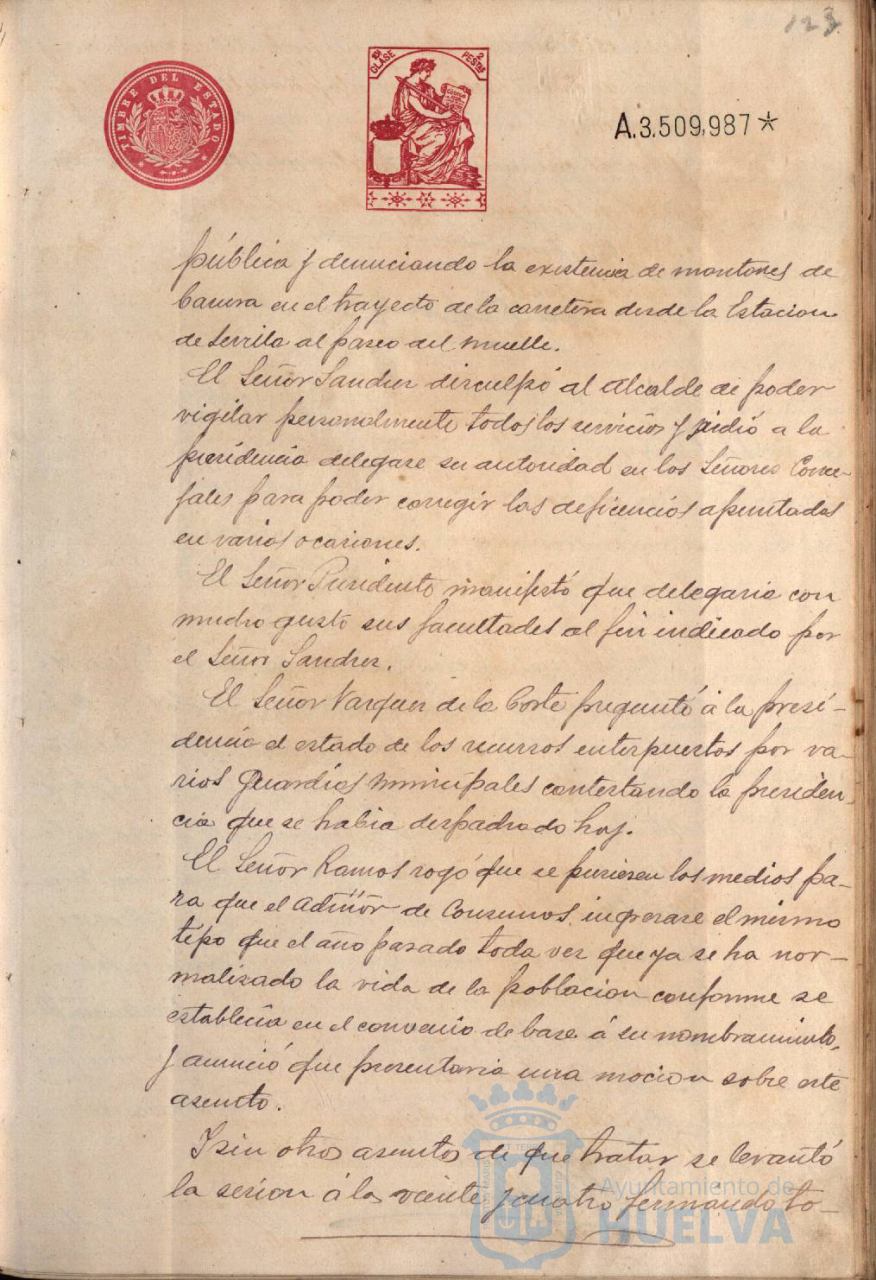 123
TIMBRE DEL ESTADO
10ª CLASE 2 PESTAS
A.3.509,987*
pública y denunciando la existencia de montones de
basura en el trayecto de la carretera desde la Estacion
de Sevilla al paseo del muelle.
El Señor Sanchez disculpó al alcalde de poder
vigilar personalmente todos los servicios y pidió a la
presidencia delegase su autoridad en los Señores Conce-
jales para poder corregir las deficencias apuntadas
en varias ocasiones.
El Señor Presidente manifestó que delegaria con
mucho gusto sus facultades al fin indicado por
el Señor Sanchez.
El Señor Vazquez de la Corte preguntó á la presi-
dencia el estado de los recursos interpuestos por va-
rios Guardias municipales contestando la presiden-
cia que se habia despachado hoy.
El Señor Ramos rogó que se pusiesen los medios pa-
ra que el Admōr de Consumos ingresase el mismo
tipo que el año pasado toda vez que ya se ha nor-
malizado la vida de la poblacion conforme se
establecia en el convenio de base á su nombramiento,
y anunció que presentaria una mocion sobre este
asunto.
I sin otros asuntos de que tratar se levantó
la sesion á las veinte y cuatro firmando to-
Ayuntamiento de
HUELVA